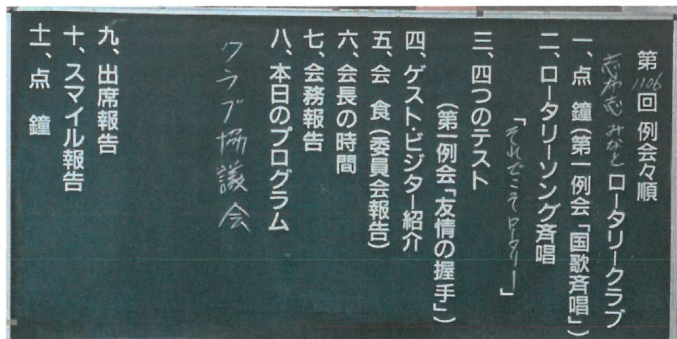 第1106回 例会々順
志布志みなとロータリークラブ
一、点 鐘(第一例会「国歌斉唱」)
二、ロータリーソング斉唱
「それでこそロータリー」
三、四つのテスト
(第一例会「友情の握手」)
四、ゲスト・ビジター紹介
五、会 食(委員会報告)
六、会長の時間
七、会務報告
八、本日のプログラム
クラブ協議会
九、出席報告
十、スマイル報告
十一、点 鐘